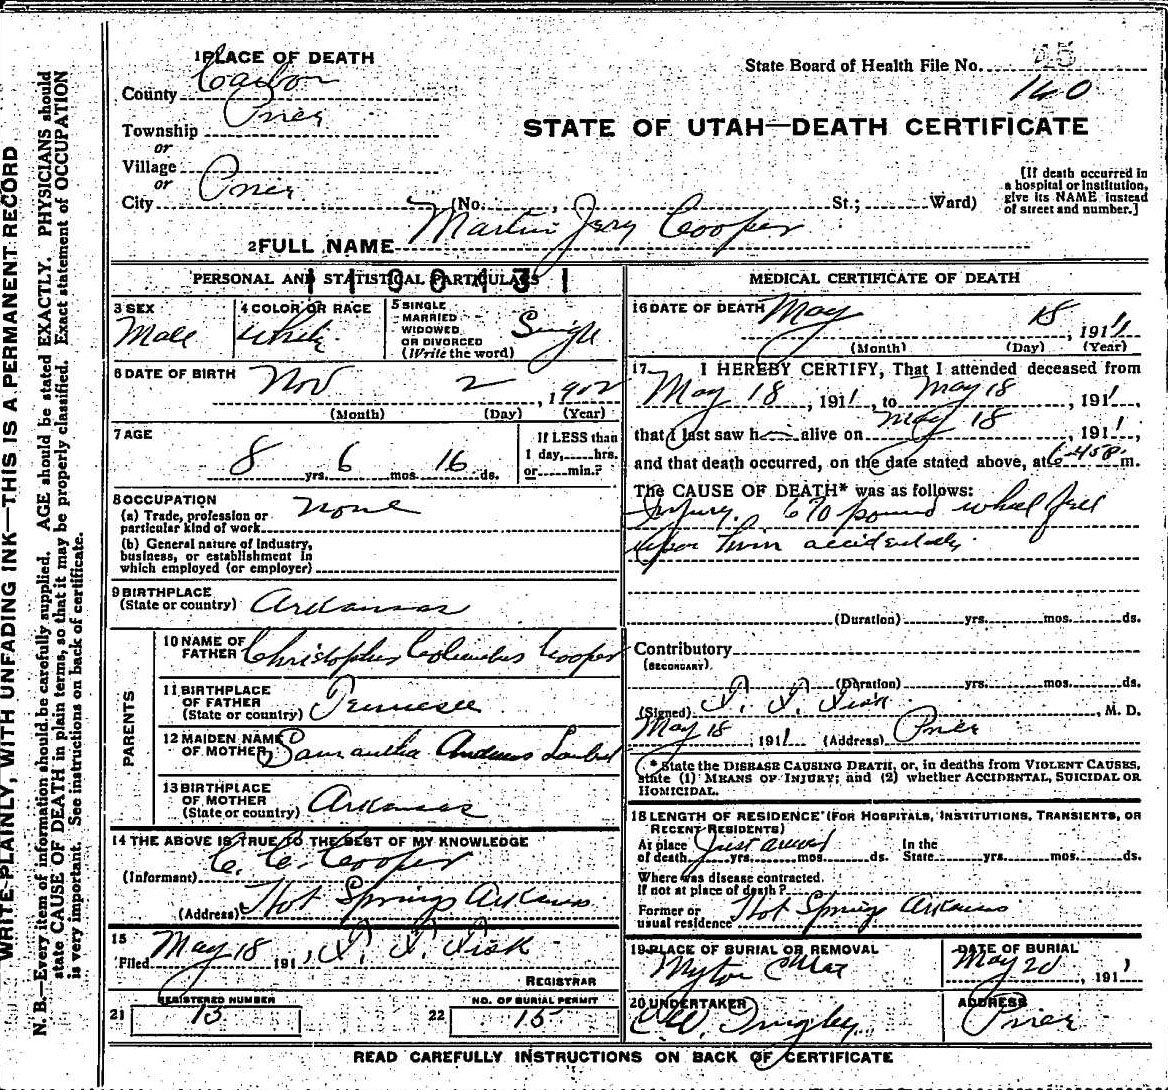 WRITE PLAINLY, WITH UNFADING INK—THIS IS A PERMANENT RECORD
N. B.—Every item of information should be carefully supplied. AGE should be stated EXACTLY. PHYSICIANS should
state CAUSE OF DEATH in plain terms, so that it may be properly classified. Exact statement of OCCUPATION
is very important. See instructions on back of certificate.
1 PLACE OF DEATH
County Carbon
Township Price
or
Village
or
City Price (No. , St.; Ward)
State Board of Health File No. 45
140
STATE OF UTAH—DEATH CERTIFICATE
[If death occurred in
a hospital or institution,
give its NAME instead
of street and number.]
2 FULL NAME Martin Jery Cooper
PERSONAL AND STATISTICAL PARTICULARS
3 SEX Male
4 COLOR OR RACE White
5 SINGLE
MARRIED
WIDOWED
OR DIVORCED
(Write the word) Single
6 DATE OF BIRTH Nov 2, 1902
(Month) (Day) (Year)
7 AGE 8 yrs. 6 mos. 16 ds.
If LESS than
1 day, hrs.
or min.?
8 OCCUPATION
(a) Trade, profession or
particular kind of work None
(b) General nature of Industry,
business, or establishment in
which employed (or employer)
9 BIRTHPLACE
(State or country) Arkansas
PARENTS
10 NAME OF
FATHER Christopher Columbus Cooper
11 BIRTHPLACE
OF FATHER
(State or country) Tennessee
12 MAIDEN NAME
OF MOTHER Samantha
13 BIRTHPLACE
OF MOTHER
(State or country) Arkansas
14 THE ABOVE IS TRUE TO THE BEST OF MY KNOWLEDGE
(Informant) C. C. Cooper
(Address) Hot Springs Arkansas
15
Filed May 18, 191 , Fisk
REGISTRAR
21 REGISTERED NUMBER 15
22 NO. OF BURIAL PERMIT 15
MEDICAL CERTIFICATE OF DEATH
16 DATE OF DEATH May 18, 1911
(Month) (Day) (Year)
17 I HEREBY CERTIFY, That I attended deceased from
May 18, 1911, to May 18, 1911,
that I last saw h alive on May 18, 1911,
and that death occurred, on the date stated above, at m.
The CAUSE OF DEATH* was as follows:
Injury. 670 pound wheel fell
upon him accidentally.
(Duration) yrs. mos. ds.
Contributory
(SECONDARY)
(Duration) yrs. mos. ds.
(Signed) Fisk, M. D.
May 18 1911 (Address) Price
* State the DISEASE CAUSING DEATH, or, in deaths from VIOLENT CAUSES,
state (1) MEANS OF INJURY; and (2) whether ACCIDENTAL, SUICIDAL OR
HOMICIDAL.
18 LENGTH OF RESIDENCE (FOR HOSPITALS, INSTITUTIONS, TRANSIENTS, OR
RECENT RESIDENTS)
At place
of death Just arrived yrs. mos. ds. In the
State yrs. mos. ds.
Where was disease contracted.
If not at place of death?
Former or
usual residence Hot Springs Arkansas
19 PLACE OF BURIAL OR REMOVAL Myton Utah
DATE OF BURIAL May 20, 1911
20 UNDERTAKER
ADDRESS Price
READ CAREFULLY INSTRUCTIONS ON BACK OF CERTIFICATE